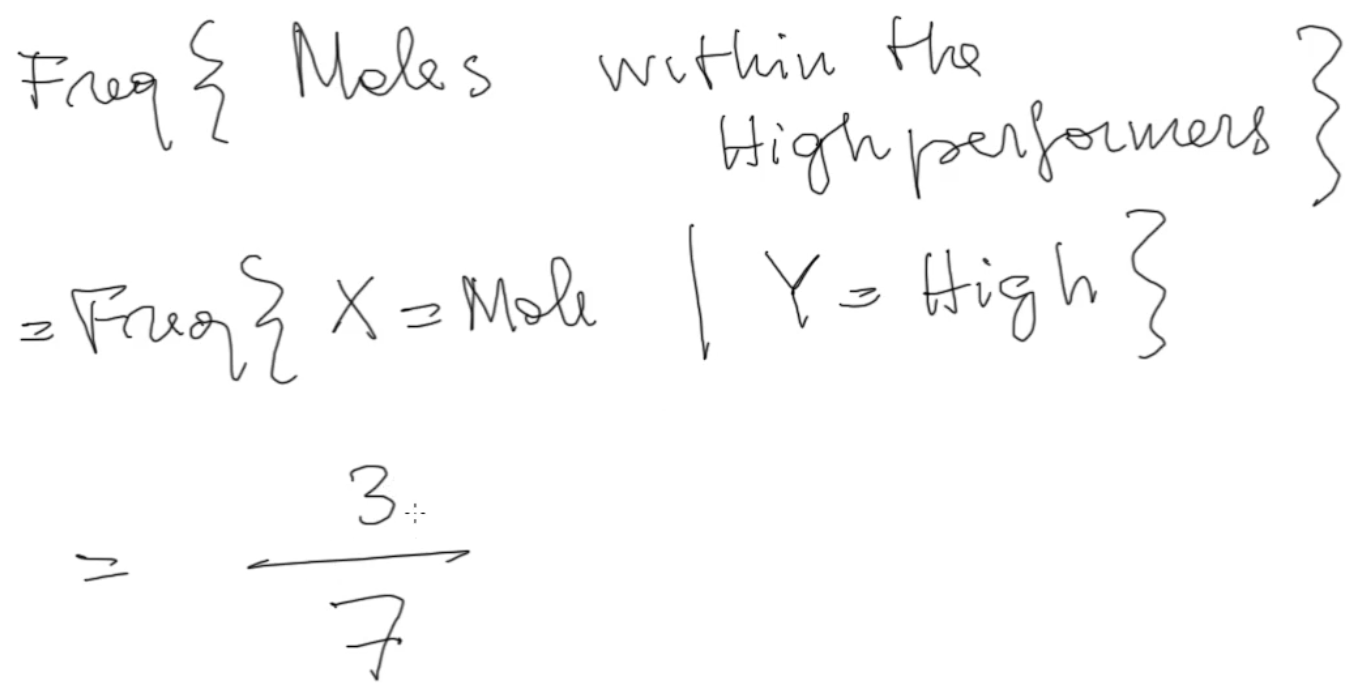 Freq{ Moles within the
High performers }
= Freq{ X = Mole | Y = High }
= 3
7